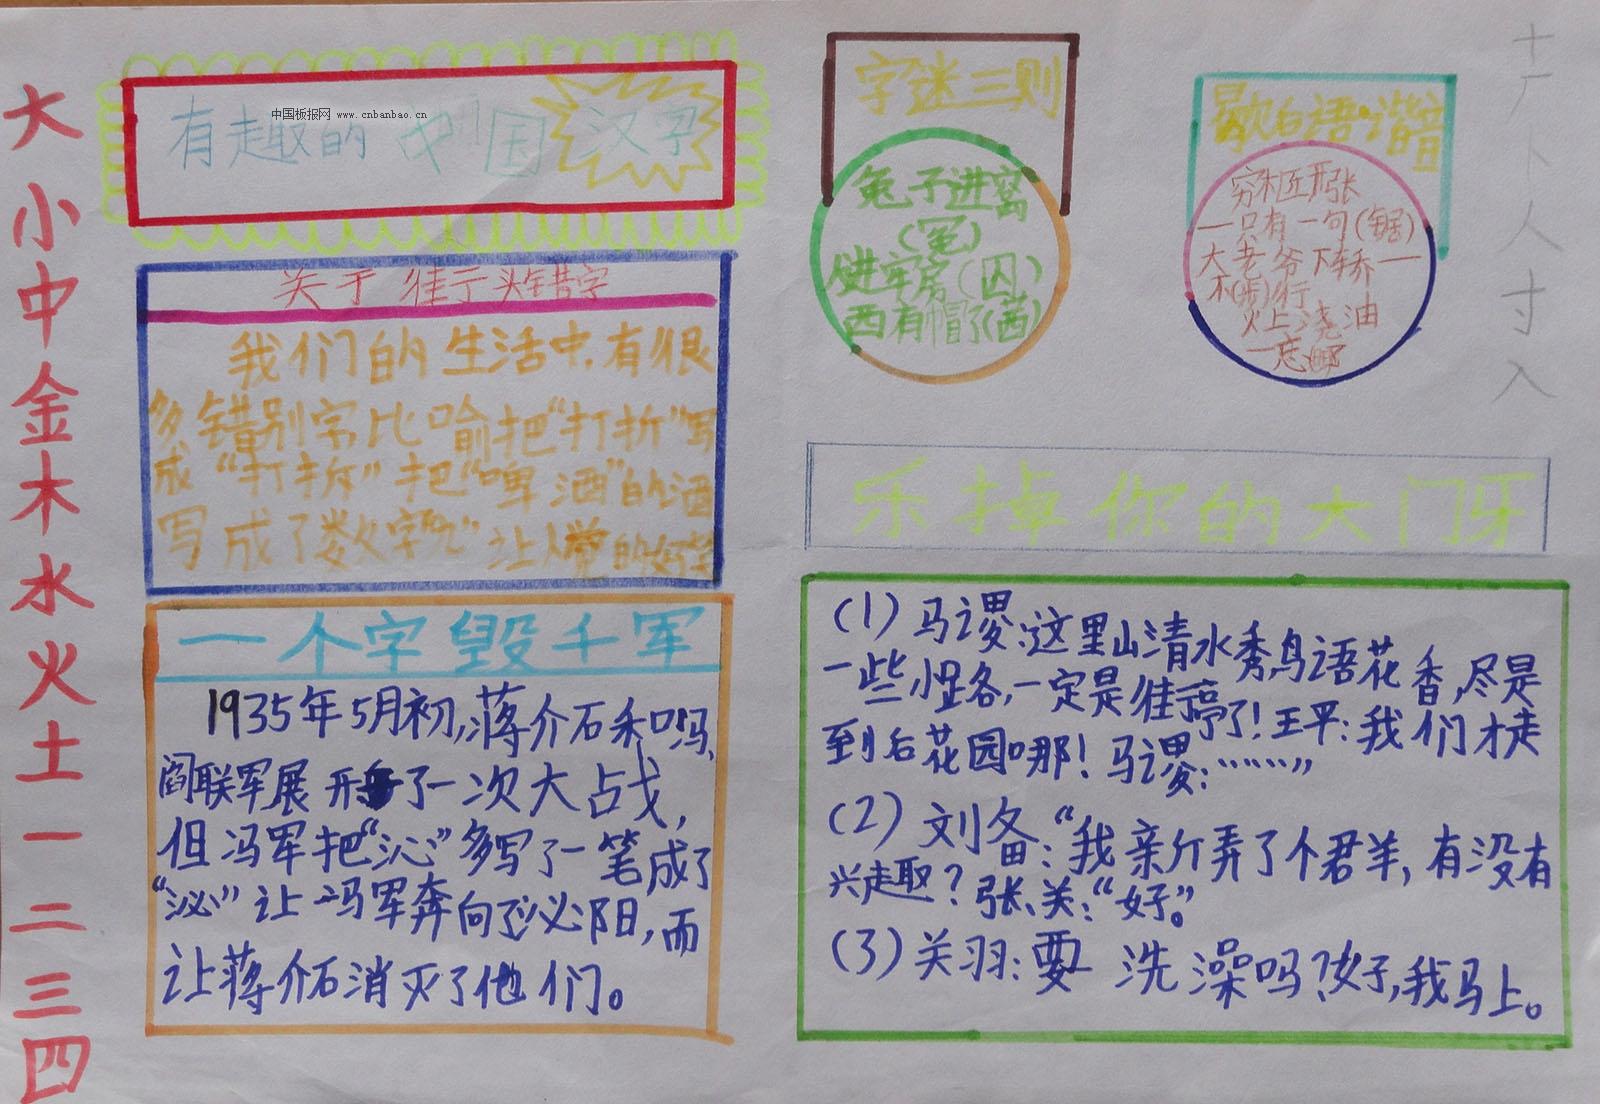 大
小
中
金
木
水
火
土
一
二
三
四
有趣的中国汉字
中国板报网 www.cnbanbao.cn
关于街头错字
我们的生活中,有很
多错别字比喻把“打折”写
成“打拆”把“啤酒”的酒
写成了数字九”让人觉的好笑
一个字毁千军
1935年5月初,蒋介石和冯、
阎联军展开了一次大战,
但冯军把“沁”多写了一笔成了
“泌”让冯军奔向了泌阳,而
让蒋介石消灭了他们。
字迷三则
兔子进窝
(冤)
人进牢房(囚)
西有帽子(茜)
歇白语·谐音
穷木匠开张
一只有一句(锯)
大老爷下轿一
不(步)行
火上浇油
十
厂
卜
人
寸
入
乐掉你的大门牙
(1)马谡:这里山清水秀,鸟语花香,尽是
一些小路,一定是街亭了!王平:我们才走
到后花园哪!马谡:“……”
(2)刘备:“我亲斤弄了个君羊,有没有
兴走趣?张、关:“好。”
(3)关羽:要洗澡吗?好,我马上。